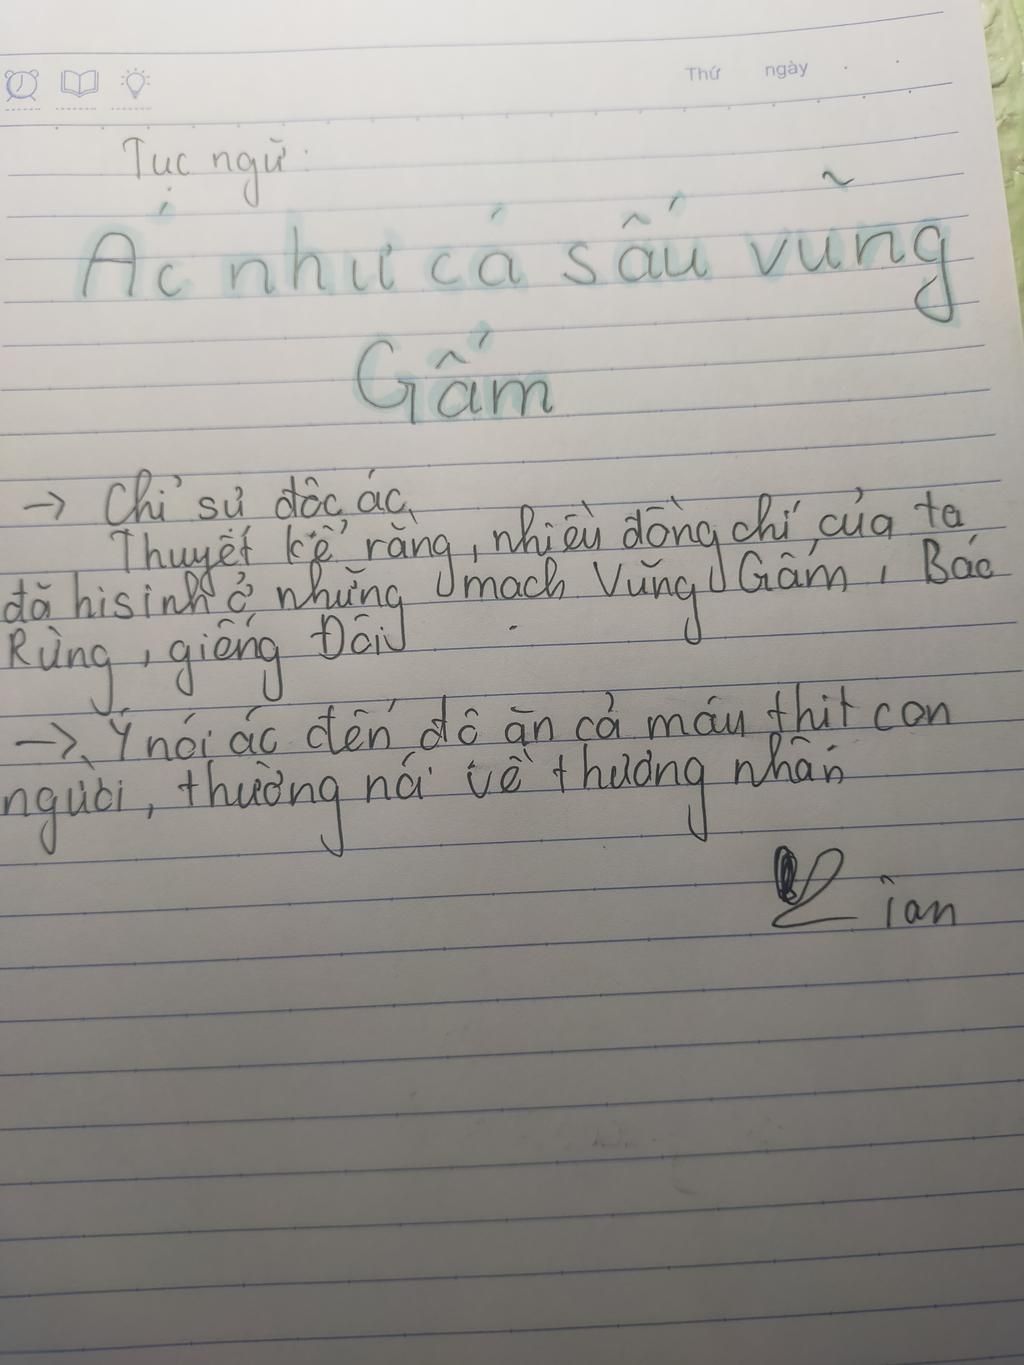 Thứ ngày
Tục ngữ:
Ác như cá sấu vũng
Gấm
→ Chỉ sự độc ác,
Thuyết kể rằng, nhiều đồng chí của ta
đã hi sinh ở những mạch Vũng Gấm, Bác
Rừng, giếng Đôi
→ Ý nói ác đến độ ăn cả máu thịt con
người, thường nói về thương nhân
ian